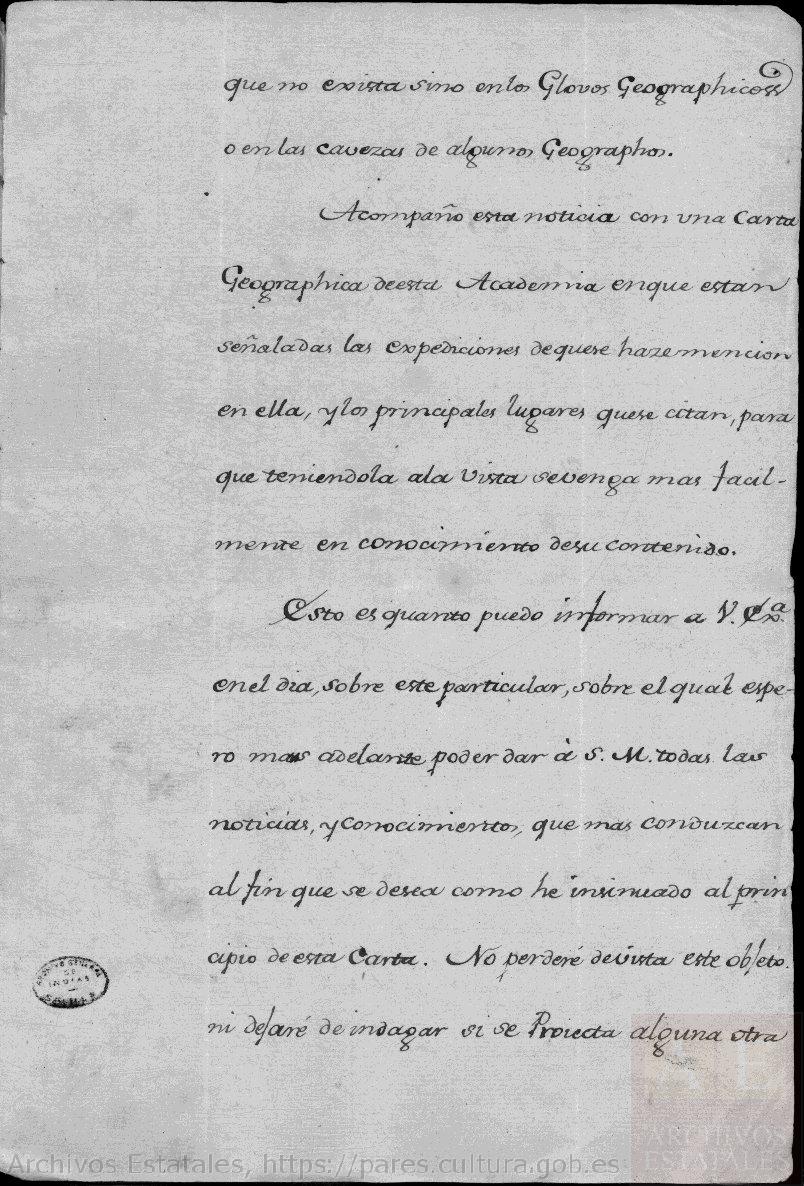 que no exista sino en los Glovos Geographicos
o en las cavezas de algunos Geographos.
Acompaño esta noticia con una Carta
Geographica de esta Academia en que estan
señaladas las expediciones de que se haze mencion
en ella, y los principales lugares que se citan, para
que teniendola a la vista se venga mas facil-
mente en conocimiento de su contenido.
Esto es quanto puedo informar a V. Exa.
en el dia, sobre este particular, sobre el qual espe-
ro mas adelante poder dar à S. M. todas las
noticias, y conocimientos, que mas conduzcan
al fin que se desea como he insinuado al prin
cipio de esta Carta. No perderé de vista este objeto.
ni dejaré de indagar si se Proiecta alguna otra
ARCHIVO GENERAL
DE
INDIAS
SEVILLA
AE
ARCHIVOS
ESTATALES
Archivos Estatales, https://pares.cultura.gob.es